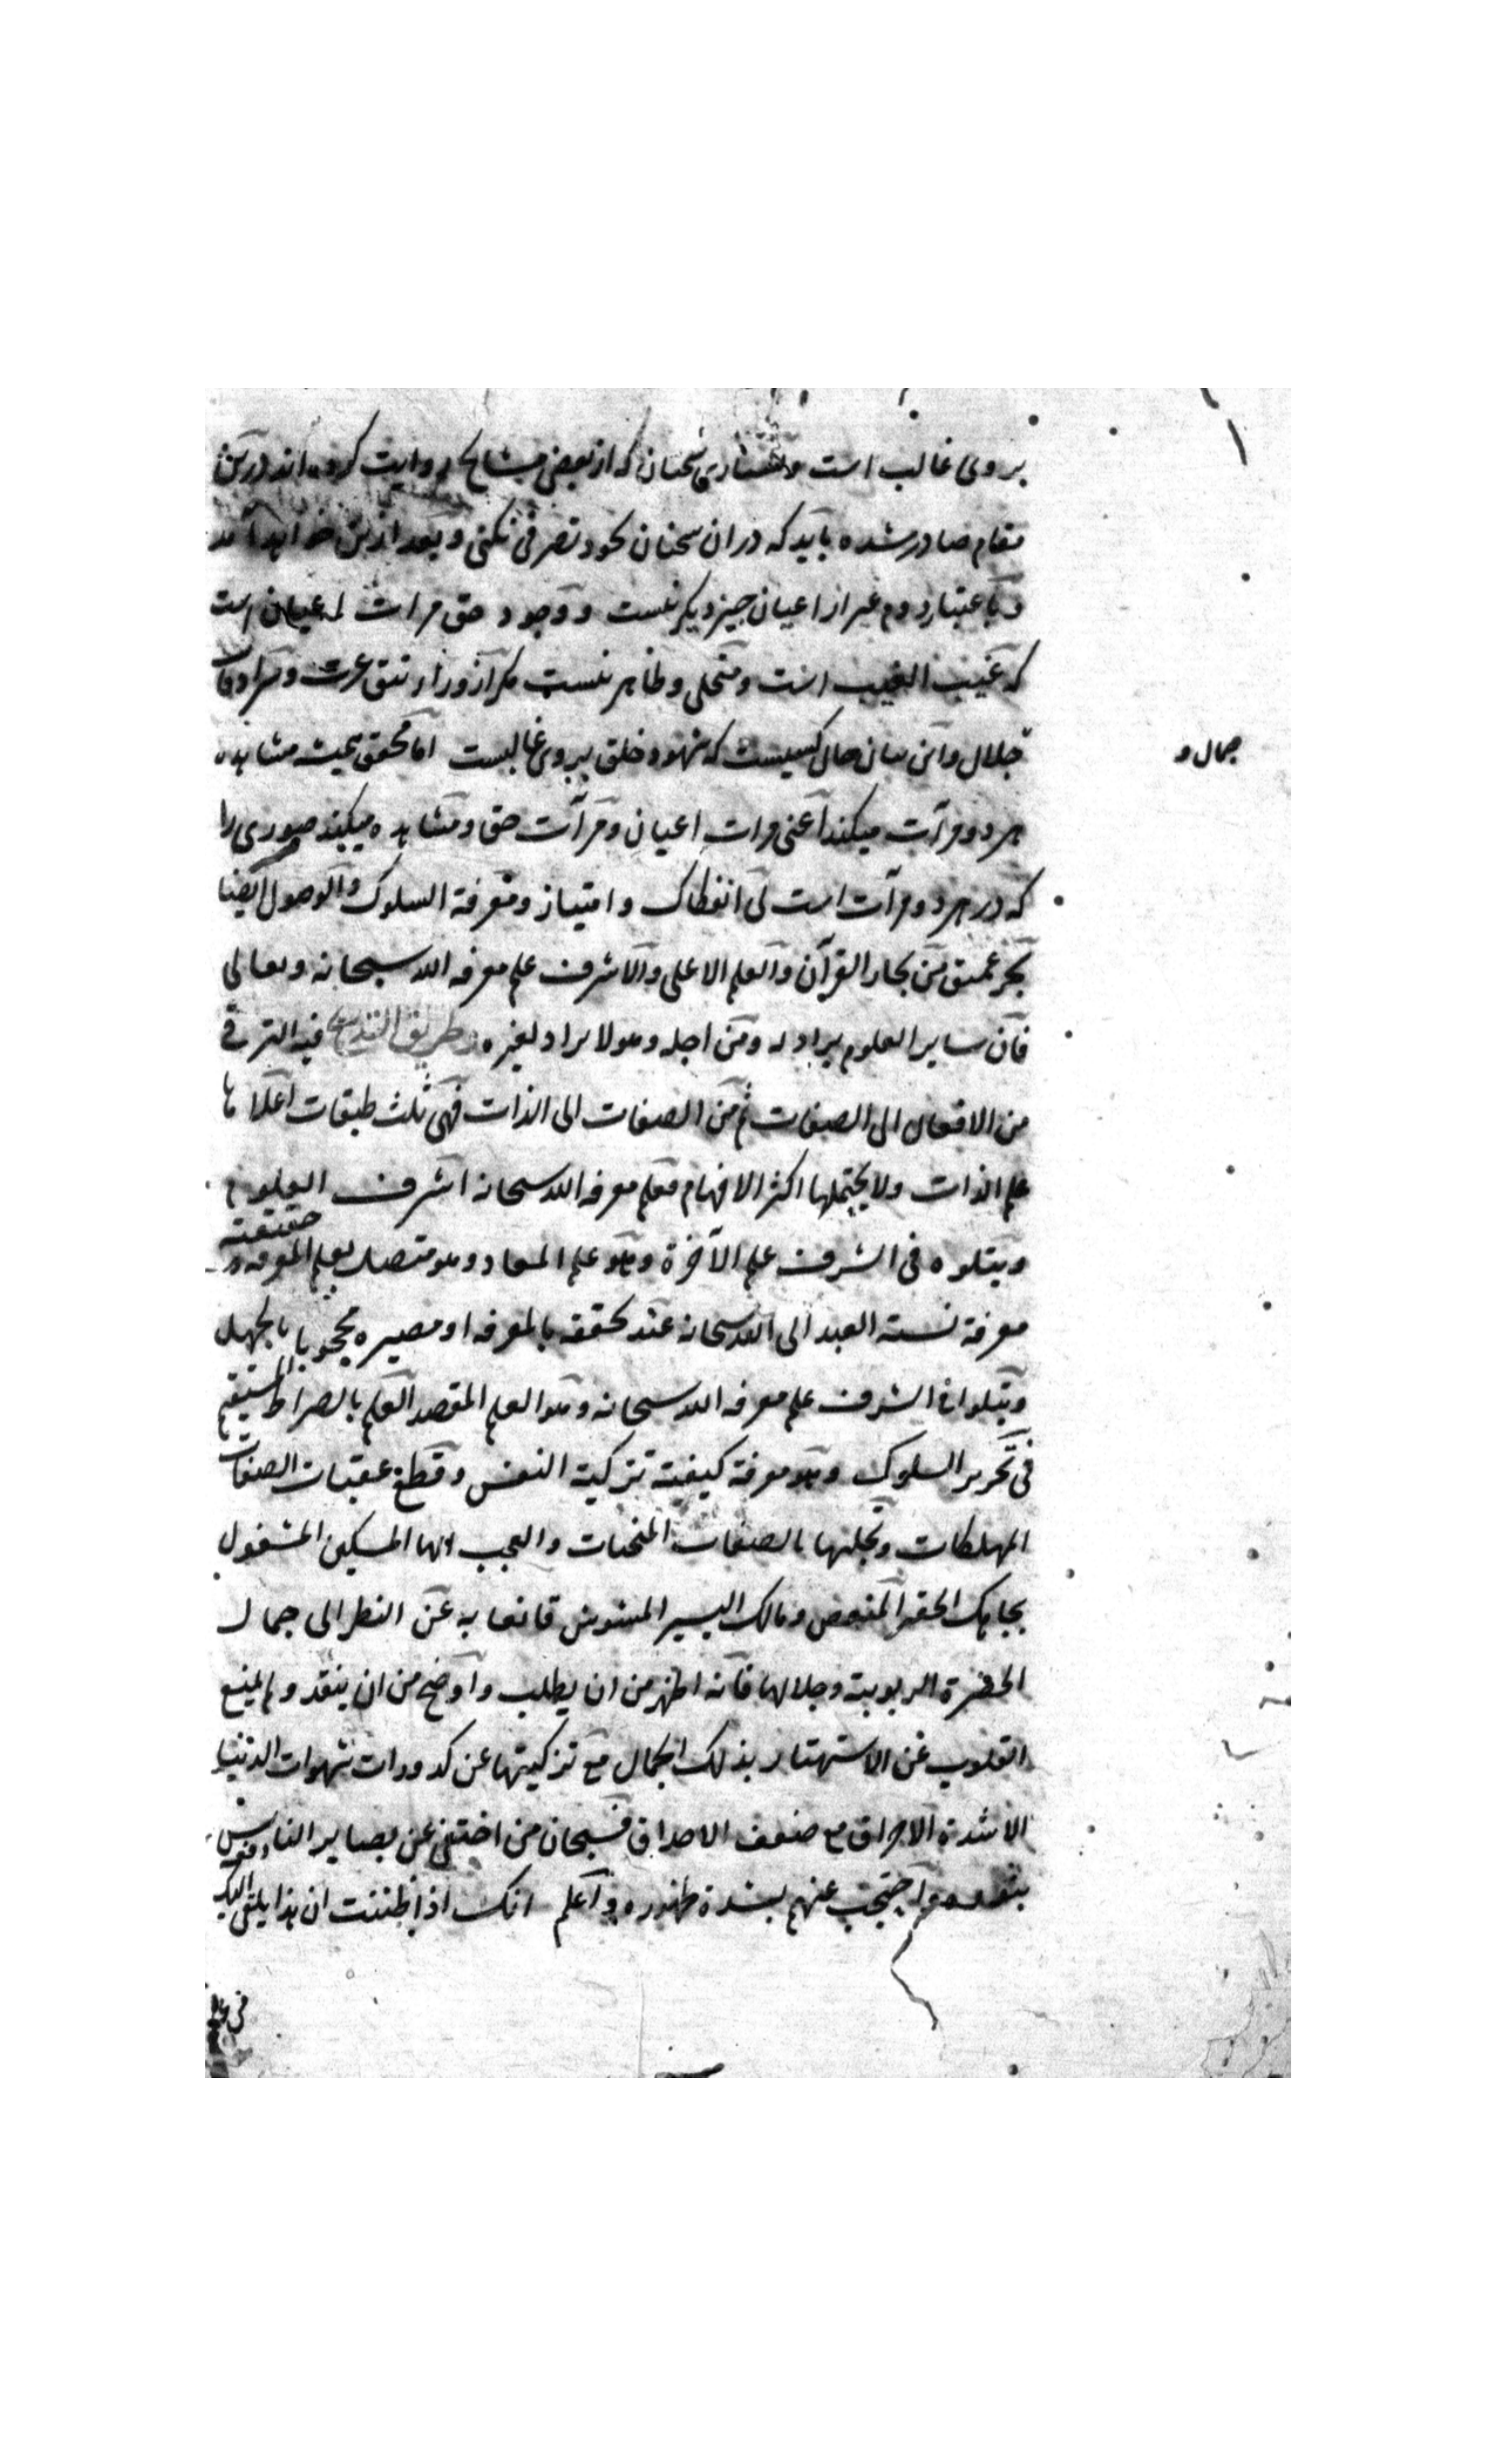 بروی غالب است و سخنان که از بعض مشایخ روایت کرده اند درین
مقام صادر شده باید که در ان سخنان بخود تصرفی نکنی و بعد ازین خواهد آمد
و باعتبار دوم غیر از اعیان چیز دیگر نیست و وجود حق مرات اعیان است
که غیب الغیب است و متجلی و ظاهر نیست مگر از وراء تتق عزت و سرادقات
جمال و
جلال و این بیان حال کسیست که شهود خلق بروی غالبست اما محقق همیشه مشاهده
هر دو مرآت میکند اعنی مرات اعیان و مرآت حق و مشاهده میکند صوری را
که در هر دو مرآت است بی انفکاک و امتیاز و معرفة السلوک والوصول ایضا
بحر عمیق من بحار القرآن والعلم الاعلی والاشرف علم معرفه الله سبحانه وتعالی
فان سایر العلوم یراد له ومن اجله وهو لا یراد لغیره وطریق التدریج فیه الترقی
من الافعال الی الصفات ثم من الصفات الی الذات فهی ثلث طبقات اعلاها
علم الذات ولا یحتملها اکثر الافهام فعلم معرفه الله سبحانه اشرف العلوم
ویتلوه فی الشرف علم الآخرة وهو علم المعاد وهو متصل بعلم المعرفه و حقیقته
معرفة نسبة العبد الی الله سبحانه عند تحققه بالمعرفه او مصیره محجوبا بالجهل
ویتلو فی الشرف علم معرفه الله سبحانه وهو العلم المقصد العلم بالصراط المستقیم
فی تحریر السلوک وهو معرفة کیفیة تزکیة النفس وقطع عقبات الصفات
المهلکات وتحلیها بالصفات المنجیات والعجب ایها المسکین المشغول
بجاهک الحقیر المنغص ومالک الیسیر المشوش قانعا به عن النظر الی جمال
الحضرة الربوبیة وجلالها فانه اظهر من ان یطلب واوضح من ان یفقد ولم یمنع
القلوب عن الاستهتار بذلک الجمال مع تزکیتها عن کدورات شهوات الدنیا
الا شدة الاشراق مع ضعف الاحداق فسبحان من اختفی عن بصایر الناس
بنوره واحتجب عنهم بشدة ظهوره واعلم انک اذا ظننت ان هذا یلقی الیک